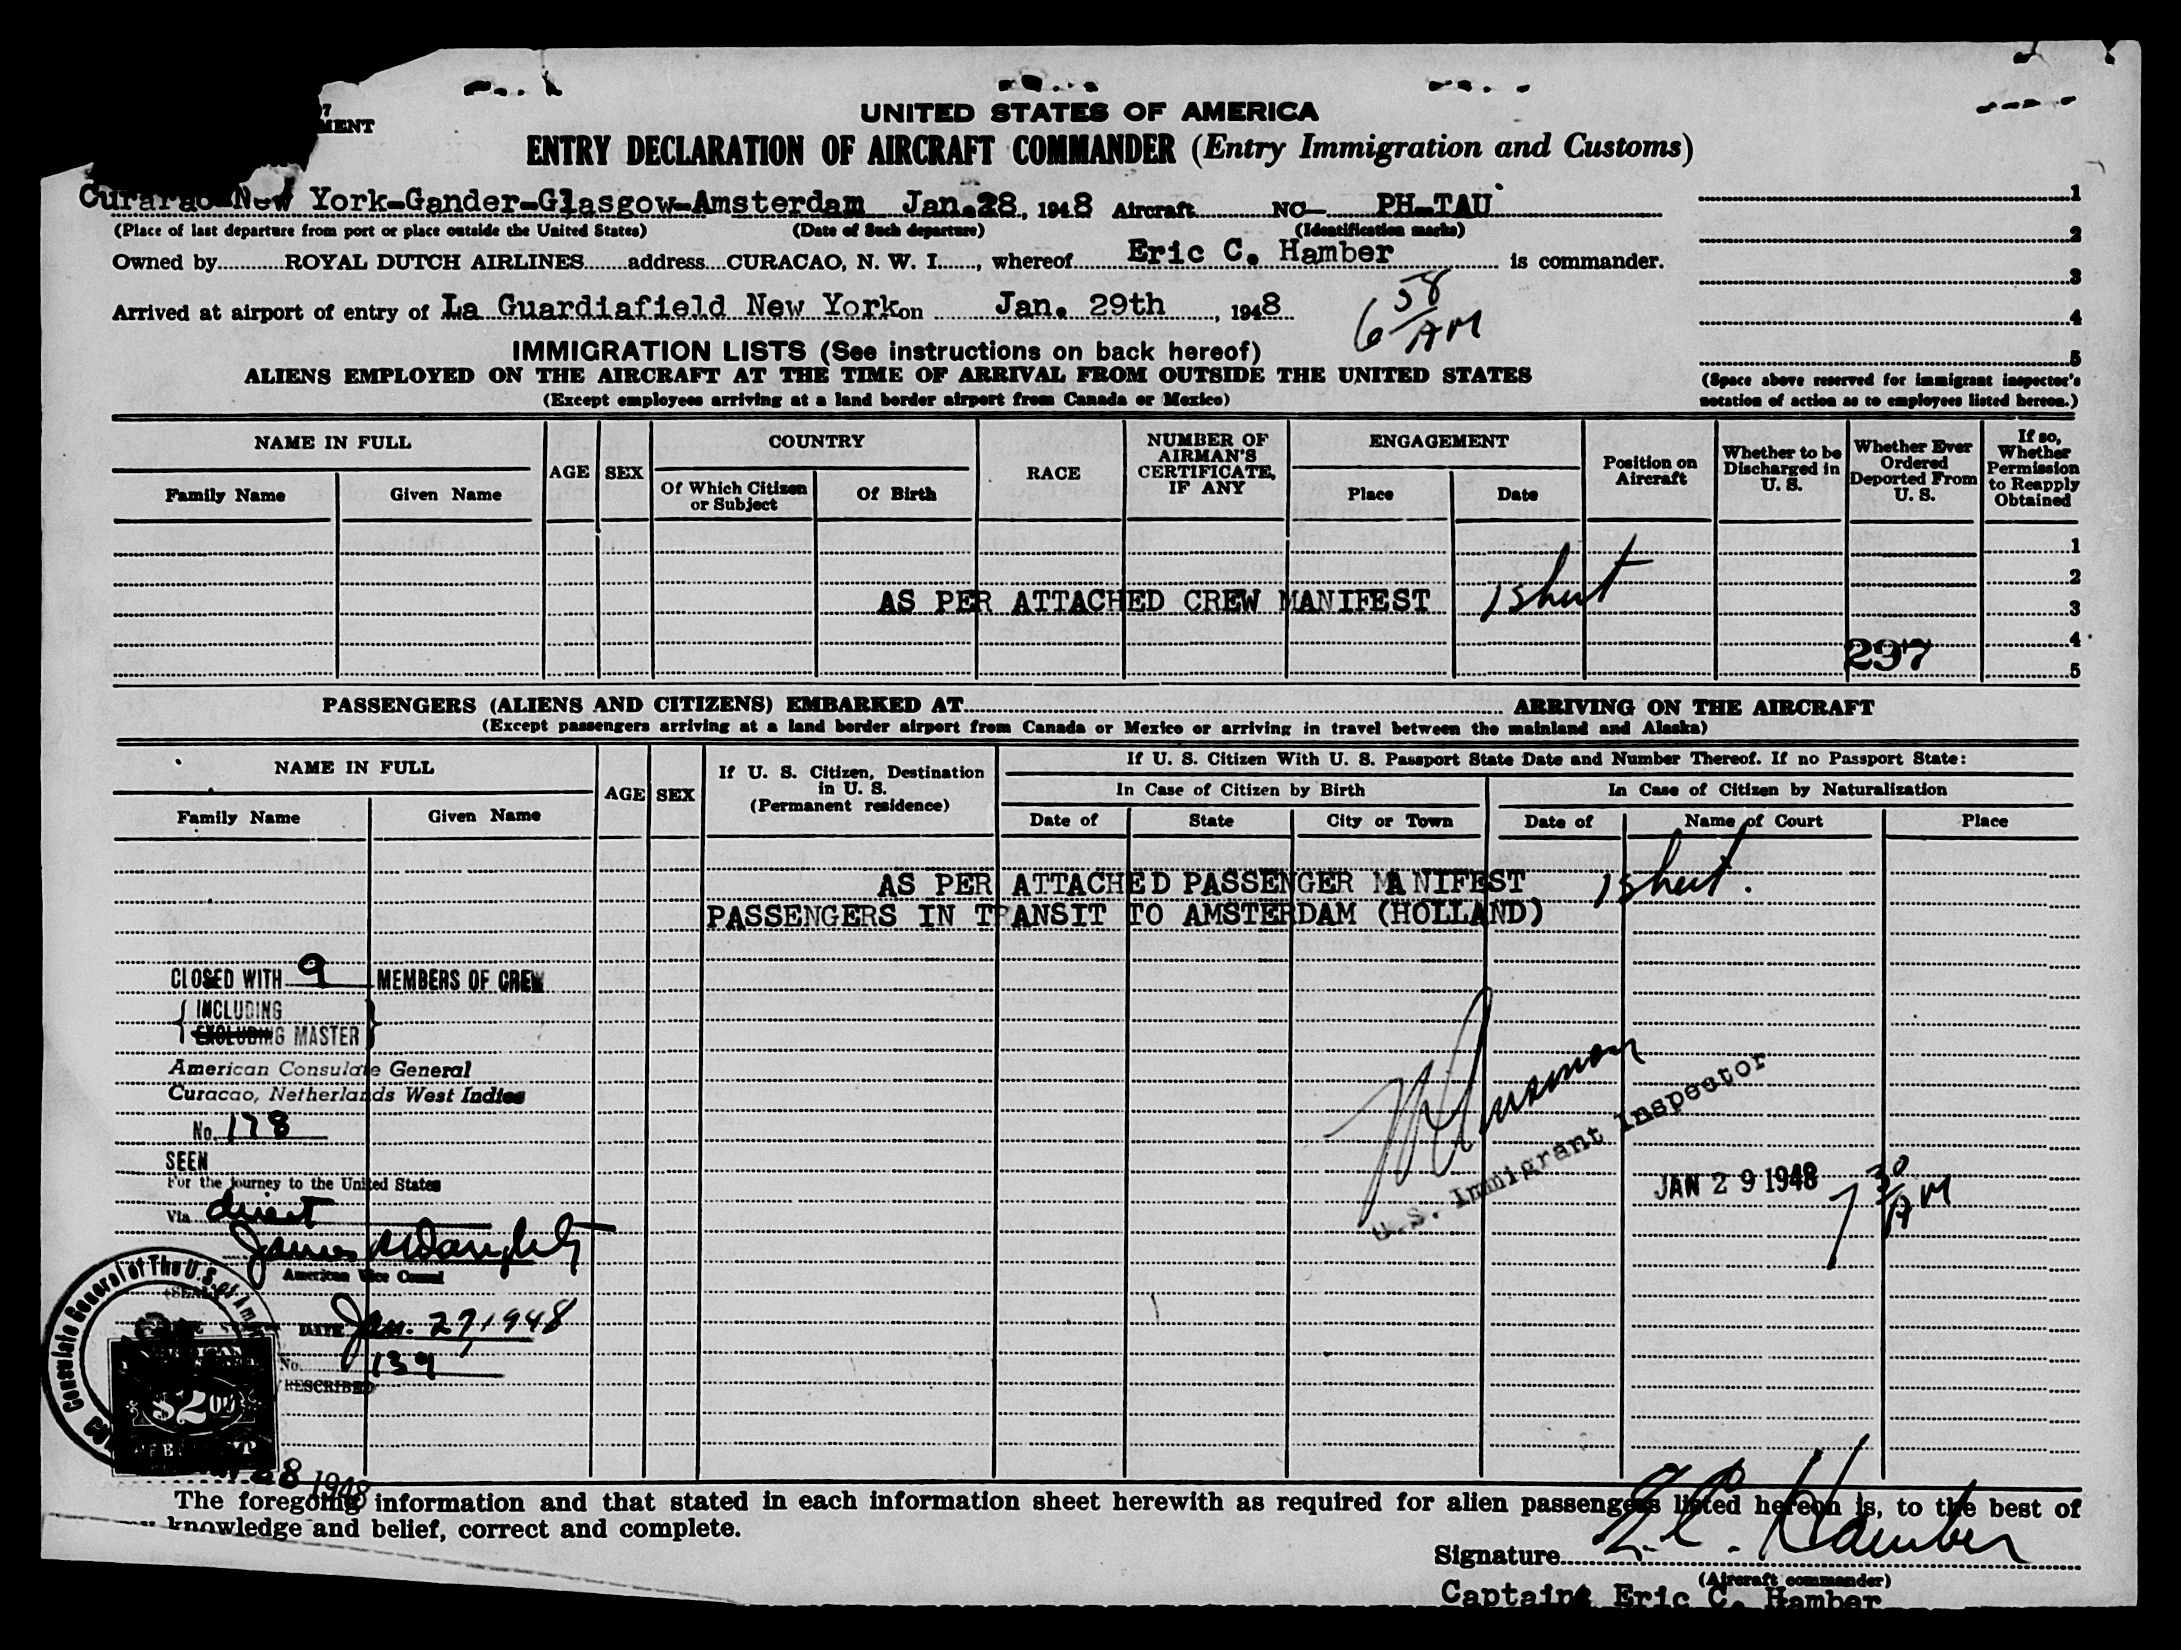 7
MENT
UNITED STATES OF AMERICA
ENTRY DECLARATION OF AIRCRAFT COMMANDER (Entry Immigration and Customs)
Curacao-New York-Gander-Glasgow-Amsterdam Jan. 28, 1948 Aircraft NC— PH-TAU
(Place of last departure from port or place outside the United States) (Date of Such departure) (Identification marks)
Owned by ROYAL DUTCH AIRLINES address CURACAO, N. W. I., whereof Eric C. Hamber is commander.
Arrived at airport of entry of La Guardiafield New York on Jan. 29th, 1948
6 58 AM
1
2
3
4
5
(Space above reserved for immigrant inspector's
notation of action as to employees listed hereon.)
IMMIGRATION LISTS (See instructions on back hereof)
ALIENS EMPLOYED ON THE AIRCRAFT AT THE TIME OF ARRIVAL FROM OUTSIDE THE UNITED STATES
(Except employees arriving at a land border airport from Canada or Mexico)
NAME IN FULL
Family Name
Given Name
AGE
SEX
COUNTRY
Of Which Citizen
or Subject
Of Birth
RACE
NUMBER OF
AIRMAN'S
CERTIFICATE,
IF ANY
ENGAGEMENT
Place
Date
Position on
Aircraft
Whether to be
Discharged in
U. S.
Whether Ever
Ordered
Deported From
U. S.
If so,
Whether
Permission
to Reapply
Obtained
1
2
AS PER ATTACHED CREW MANIFEST 1 sheet
3
4
297
5
PASSENGERS (ALIENS AND CITIZENS) EMBARKED AT ARRIVING ON THE AIRCRAFT
(Except passengers arriving at a land border airport from Canada or Mexico or arriving in travel between the mainland and Alaska)
NAME IN FULL
Family Name
Given Name
AGE
SEX
If U. S. Citizen, Destination
in U. S.
(Permanent residence)
If U. S. Citizen With U. S. Passport State Date and Number Thereof. If no Passport State:
In Case of Citizen by Birth
In Case of Citizen by Naturalization
Date of
State
City or Town
Date of
Name of Court
Place
AS PER ATTACHED PASSENGER MANIFEST 1 sheet.
PASSENGERS IN TRANSIT TO AMSTERDAM (HOLLAND)
CLOSED WITH 9 MEMBERS OF CREW
INCLUDING
EXCLUDING MASTER
American Consulate General
Curacao, Netherlands West Indies
No. 178
SEEN
For the journey to the United States
Via direct
American Vice Consul
(SEAL)
Consulate General of The U.S. of Am
DATE Jan. 27, 1948
No. 139
PRESCRIBED
$2.00
28 1948
U.S. Immigrant Inspector
JAN 29 1948
7 30 AM
The foregoing information and that stated in each information sheet herewith as required for alien passengers listed hereon is, to the best of
my knowledge and belief, correct and complete.
Signature E. C. Hamber
(Aircraft commander)
Captain Eric C. Hamber